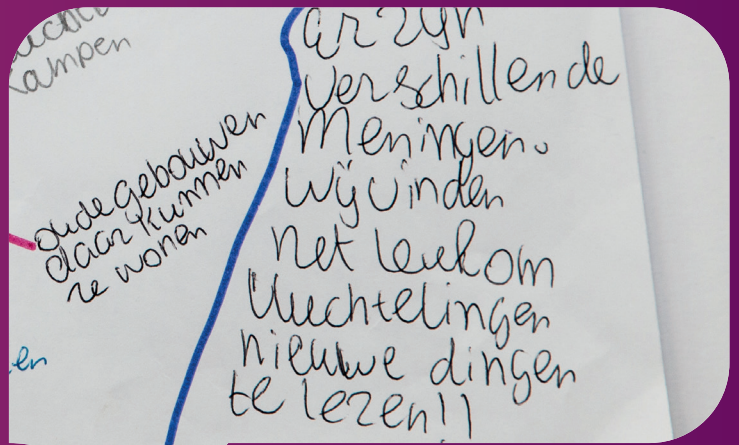 kampen
oude gebouwen
daar kunnen
ze wonen
en
er zijn
verschillende
Meningen.
wij vinden
het leuk om
Vluchtelingen
nieuwe dingen
te leren!!